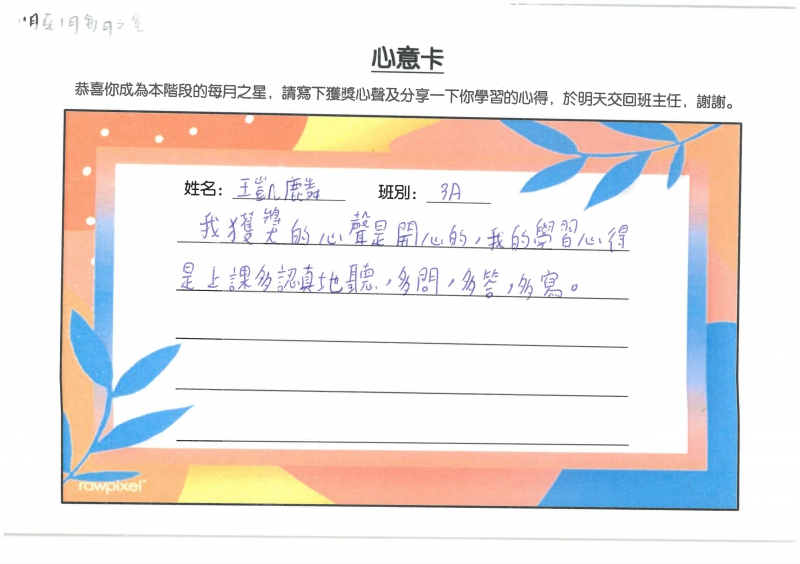 心意卡
恭喜你成為本階段的每月之星，請寫下獲獎心聲及分享一下你學習的心得，於明天交回班主任，謝謝。
姓名：王凱麟 班別：3A
我獲獎的心聲是開心的，我的學習心得
是上課多認真地聽，多問，多答，多寫。
rawpixel